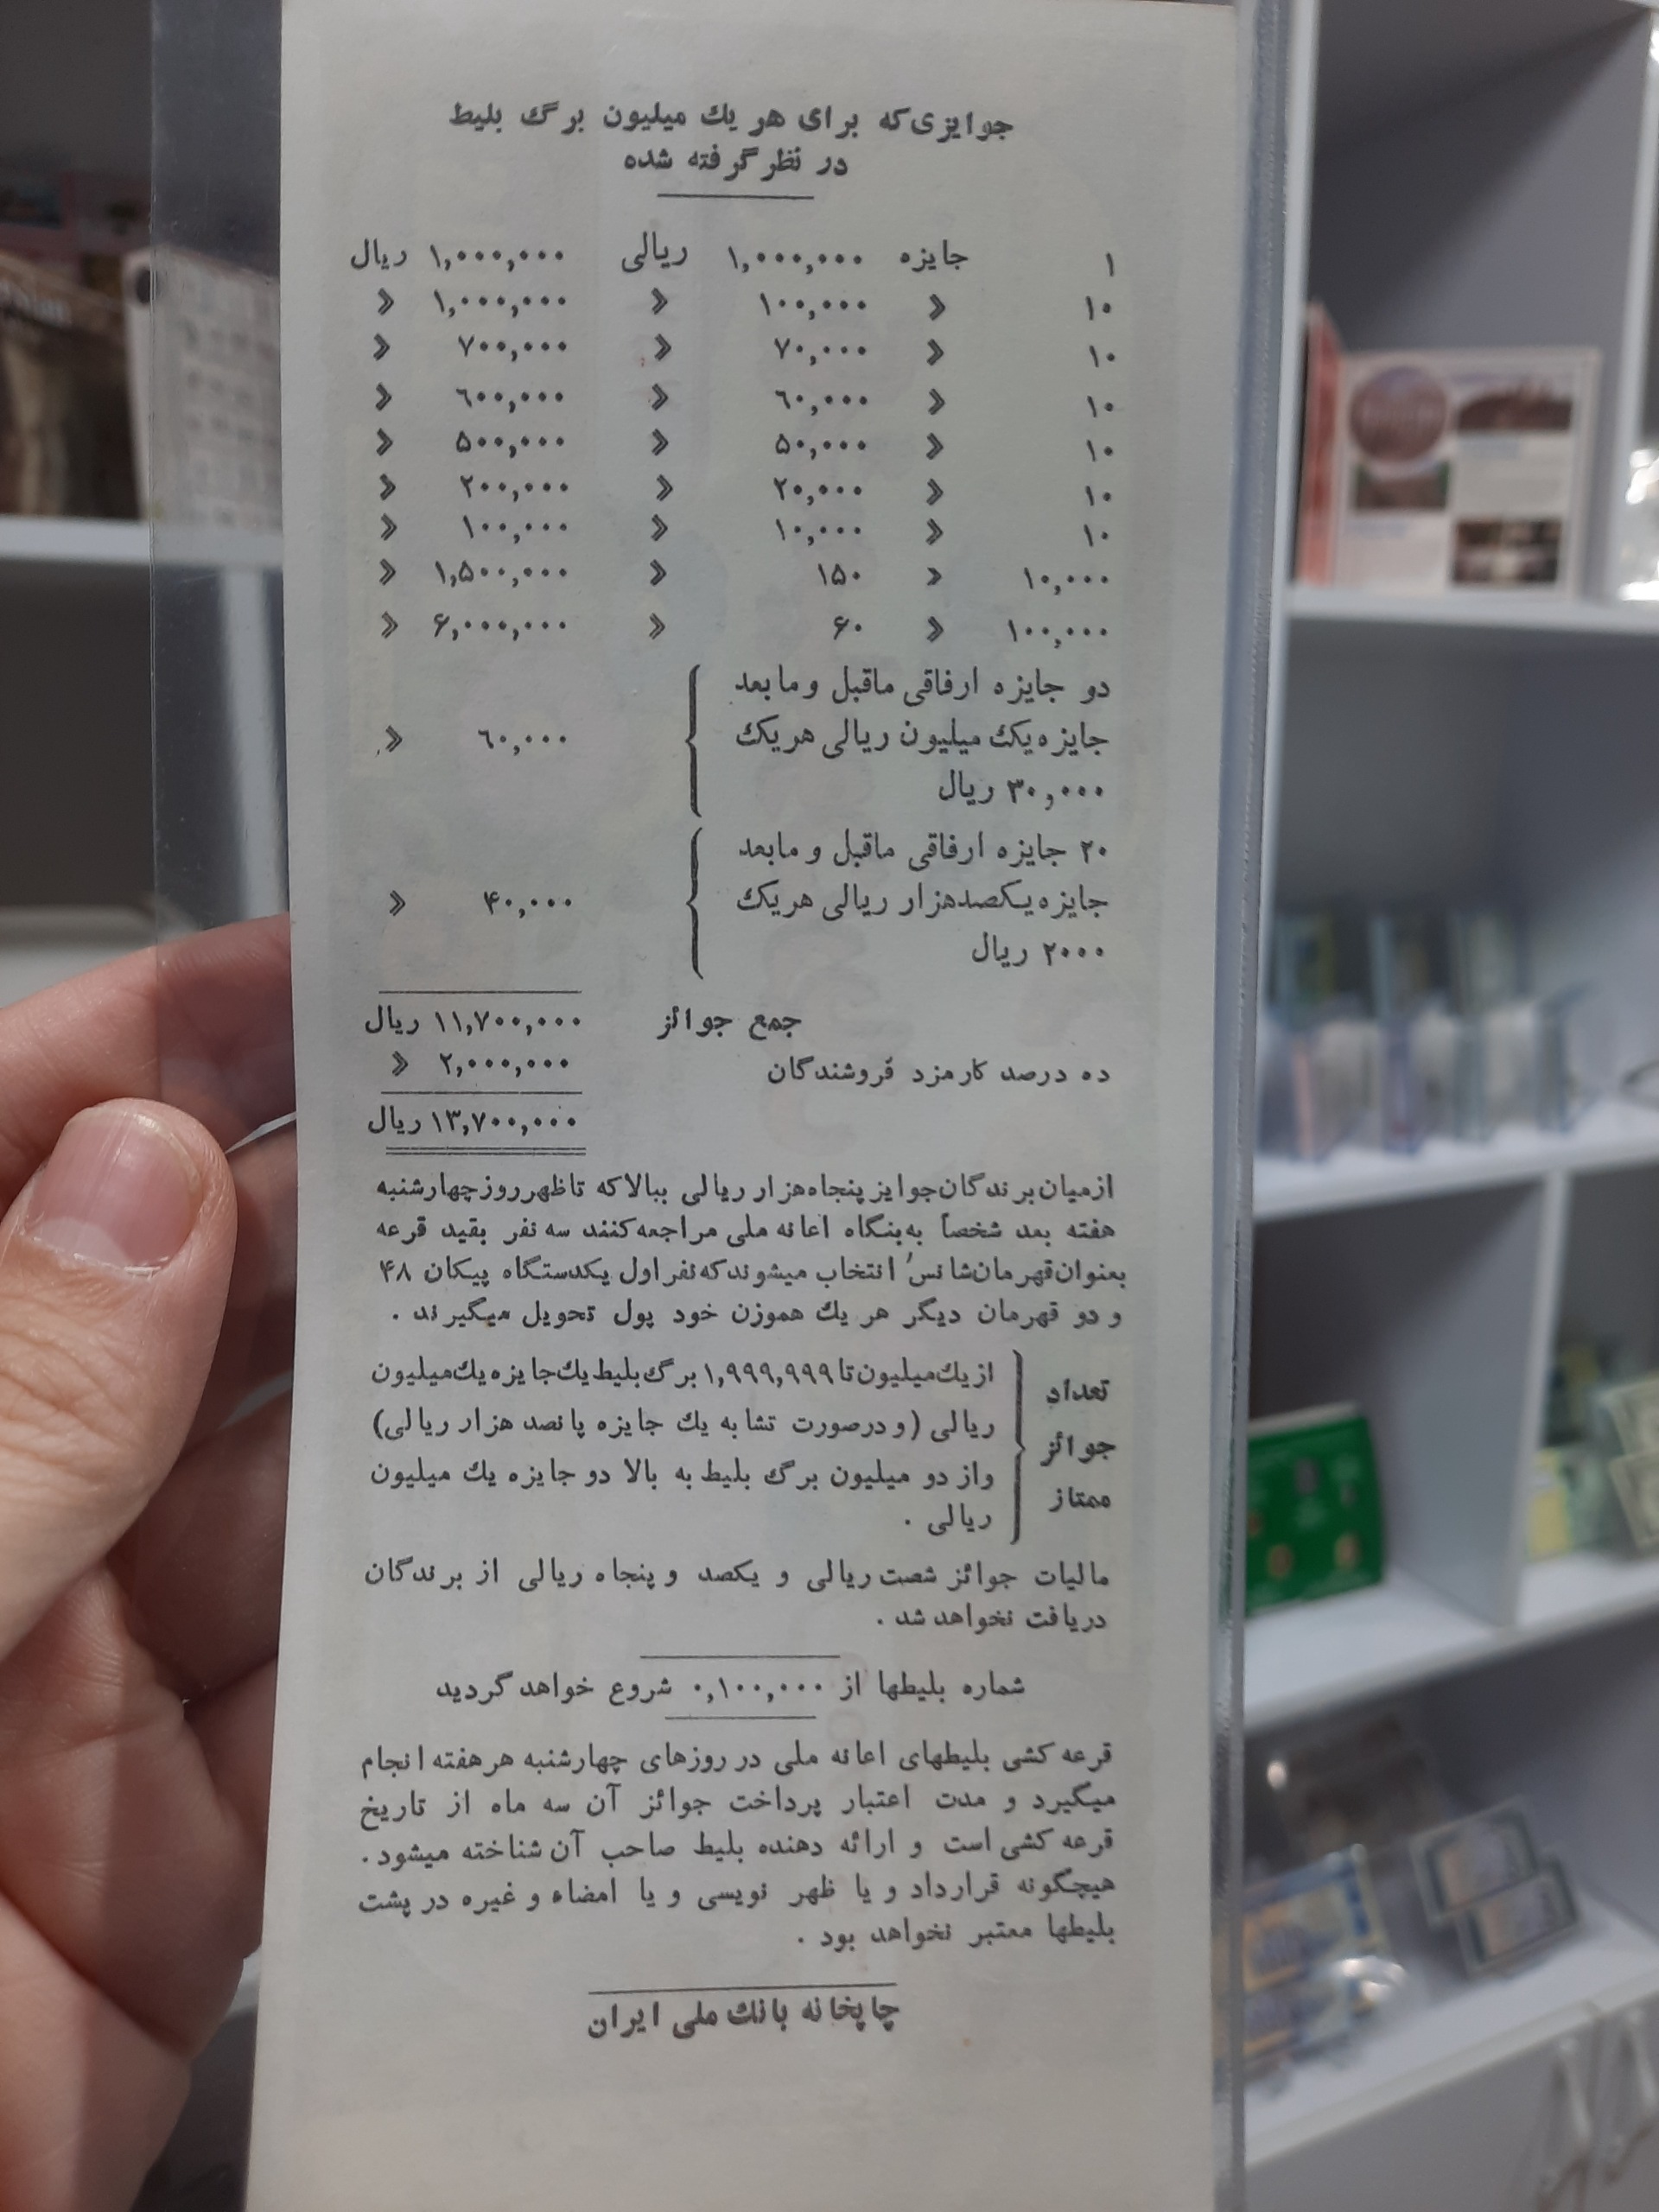 جوایزی‌که برای هر یك میلیون برگ بلیط
در نظر گرفته شده
۱ جایزه ۱,۰۰۰,۰۰۰ ریالی ۱,۰۰۰,۰۰۰ ریال
۱۰ » ۱۰۰,۰۰۰ » ۱,۰۰۰,۰۰۰ »
۱۰ » ۷۰,۰۰۰ » ۷۰۰,۰۰۰ »
۱۰ » ٦۰,۰۰۰ » ٦۰۰,۰۰۰ »
۱۰ » ۵۰,۰۰۰ » ۵۰۰,۰۰۰ »
۱۰ » ۲۰,۰۰۰ » ۲۰۰,۰۰۰ »
۱۰ » ۱۰,۰۰۰ » ۱۰۰,۰۰۰ »
۱۰,۰۰۰ » ۱۵۰ » ۱,۵۰۰,۰۰۰ »
۱۰۰,۰۰۰ » ۶۰ » ۶,۰۰۰,۰۰۰ »
دو جایزه ارفاقی ماقبل و مابعد
جایزه یکک میلیون ریالی هریک ٦۰,۰۰۰ »
۳۰,۰۰۰ ریال
۲۰ جایزه ارفاقی ماقبل و مابعد
جایزه یکصدهزار ریالی هریک ۴۰,۰۰۰ »
۲۰۰۰ ریال
جمع جوائز ۱۱,۷۰۰,۰۰۰ ریال
ده درصد کارمزد فروشندگان ۲,۰۰۰,۰۰۰ »
۱۳,۷۰۰,۰۰۰ ریال
ازمیان برندگان جوایز پنجاه‌هزار ریالی ببالا که تاظهرروز چهارشنبه
هفته بعد شخصاً به بنگاه اعانه ملی مراجعه کنند سه نفر بقید قرعه
بعنوان قهرمان شانس انتخاب میشوند که نفر اول یکدستگاه پیکان ۴۸
و دو قهرمان دیگر هر یك هموزن خود پول تحویل میگیرند .
تعداد جوائز ممتاز
از یك میلیون تا ۱,۹۹۹,۹۹۹ برگ بلیط یك جایزه یك میلیون
ریالی (و درصورت تشابه یك جایزه پانصد هزار ریالی)
واز دو میلیون برگ بلیط به بالا دو جایزه یك میلیون
ریالی .
مالیات جوائز شصت ریالی و یکصد و پنجاه ریالی از برندگان
دریافت نخواهد شد .
شماره بلیطها از ۰,۱۰۰,۰۰۰ شروع خواهد گردید
قرعه کشی بلیطهای اعانه ملی در روزهای چهارشنبه هر هفته انجام
میگیرد و مدت اعتبار پرداخت جوائز آن سه ماه از تاریخ
قرعه کشی است و ارائه دهنده بلیط صاحب آن شناخته میشود .
هیچگونه قرارداد و یا ظهر نویسی و یا امضاء و غیره در پشت
بلیطها معتبر نخواهد بود .
چاپخانه بانك ملی ایران